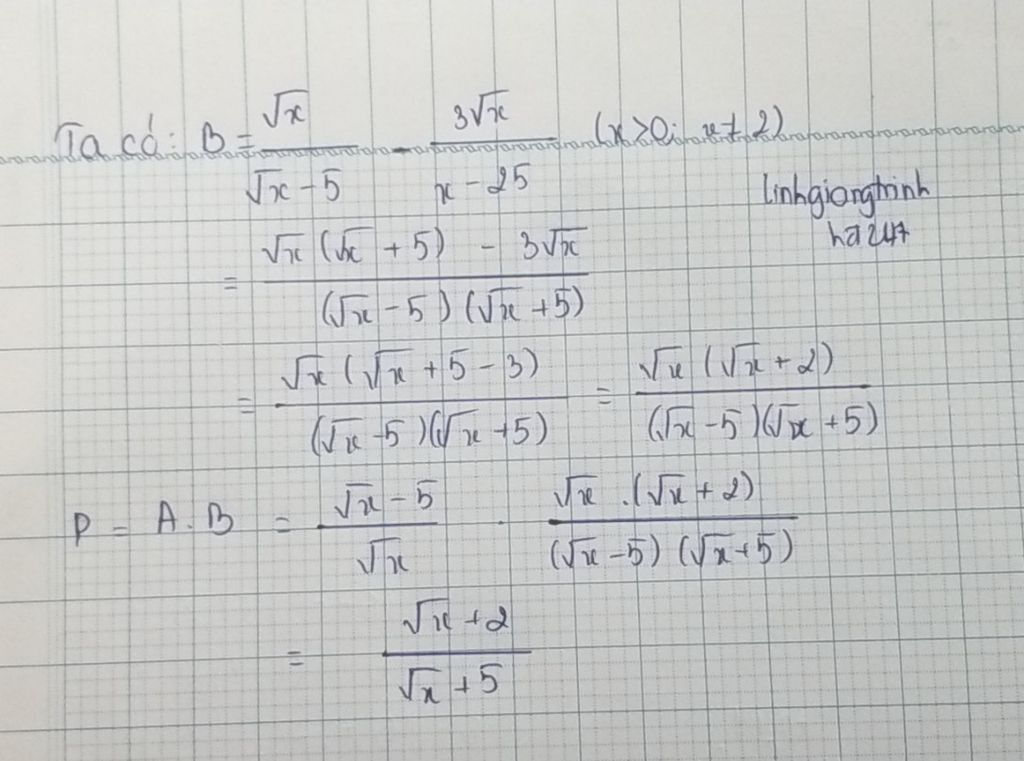 Ta có: B = √x / (√x - 5) - 3√x / (x - 25) (x > 0; x ≠ 2)
linhgiangtrinh
ha 247
= (√x (√x + 5) - 3√x) / ((√x - 5) (√x + 5))
= (√x (√x + 5 - 3)) / ((√x - 5)(√x + 5)) = (√x (√x + 2)) / ((√x - 5)(√x + 5))
P = A . B = (√x - 5) / √x . (√x . (√x + 2)) / ((√x - 5) (√x + 5))
= (√x + 2) / (√x + 5)